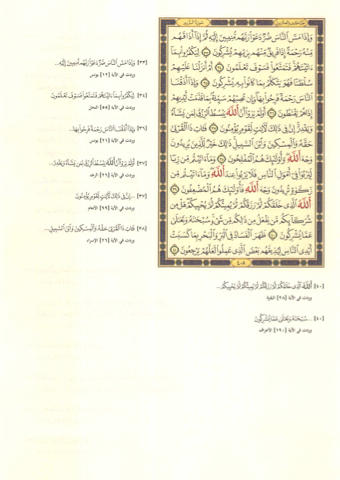 وَإِذَا مَسَّ النَّاسَ ضُرٌّ دَعَوْا رَبَّهُم مُّنِيبِينَ إِلَيْهِ ثُمَّ إِذَا أَذَاقَهُم
مِّنْهُ رَحْمَةً إِذَا فَرِيقٌ مِّنْهُم بِرَبِّهِمْ يُشْرِكُونَ ٣٣ لِيَكْفُرُوا بِمَا
ءَاتَيْنَاهُمْ فَتَمَتَّعُوا فَسَوْفَ تَعْلَمُونَ ٣٤ أَمْ أَنزَلْنَا عَلَيْهِمْ
سُلْطَانًا فَهُوَ يَتَكَلَّمُ بِمَا كَانُوا بِهِ يُشْرِكُونَ ٣٥ وَإِذَا أَذَقْنَا
النَّاسَ رَحْمَةً فَرِحُوا بِهَا وَإِن تُصِبْهُمْ سَيِّئَةٌ بِمَا قَدَّمَتْ أَيْدِيهِمْ
إِذَا هُمْ يَقْنَطُونَ ٣٦ أَوَلَمْ يَرَوْا أَنَّ اللَّهَ يَبْسُطُ الرِّزْقَ لِمَن يَشَاءُ
وَيَقْدِرُ إِنَّ فِي ذَٰلِكَ لَآيَاتٍ لِّقَوْمٍ يُؤْمِنُونَ ٣٧ فَآتِ ذَا الْقُرْبَىٰ
حَقَّهُ وَالْمِسْكِينَ وَابْنَ السَّبِيلِ ذَٰلِكَ خَيْرٌ لِّلَّذِينَ يُرِيدُونَ
وَجْهَ اللَّهِ وَأُولَٰئِكَ هُمُ الْمُفْلِحُونَ ٣٨ وَمَا ءَاتَيْتُم مِّن رِّبًا
لِّيَرْبُوَا فِي أَمْوَالِ النَّاسِ فَلَا يَرْبُوا عِندَ اللَّهِ وَمَا ءَاتَيْتُم مِّن
زَكَاةٍ تُرِيدُونَ وَجْهَ اللَّهِ فَأُولَٰئِكَ هُمُ الْمُضْعِفُونَ ٣٩
اللَّهُ الَّذِي خَلَقَكُمْ ثُمَّ رَزَقَكُمْ ثُمَّ يُمِيتُكُمْ ثُمَّ يُحْيِيكُمْ هَلْ مِن
شُرَكَائِكُم مَّن يَفْعَلُ مِن ذَٰلِكُم مِّن شَيْءٍ سُبْحَانَهُ وَتَعَالَىٰ
عَمَّا يُشْرِكُونَ ٤٠ ظَهَرَ الْفَسَادُ فِي الْبَرِّ وَالْبَحْرِ بِمَا كَسَبَتْ
أَيْدِي النَّاسِ لِيُذِيقَهُم بَعْضَ الَّذِي عَمِلُوا لَعَلَّهُمْ يَرْجِعُونَ ٤١
٤٠٨
[٣٣] وَإِذَا مَسَّ النَّاسَ ضُرٌّ دَعَوْا رَبَّهُم مُّنِيبِينَ إِلَيْهِ...
وردت في الآية [١٢] يونس
[٣٤] لِيَكْفُرُوا بِمَا ءَاتَيْنَاهُمْ فَتَمَتَّعُوا فَسَوْفَ تَعْلَمُونَ
وردت في الآية [٥٥] النحل
[٣٦] وَإِذَا أَذَقْنَا النَّاسَ رَحْمَةً فَرِحُوا بِهَا...
وردت في الآية [٢١] يونس
[٣٧] أَوَلَمْ يَرَوْا أَنَّ اللَّهَ يَبْسُطُ الرِّزْقَ لِمَن يَشَاءُ وَيَقْدِرُ...
وردت في الآية [٢٦] الرعد
[٣٧] ...إِنَّ فِي ذَٰلِكَ لَآيَاتٍ لِّقَوْمٍ يُؤْمِنُونَ
وردت في الآية [٩٩] الأنعام
[٣٨] فَآتِ ذَا الْقُرْبَىٰ حَقَّهُ وَالْمِسْكِينَ وَابْنَ السَّبِيلِ...
وردت في الآية [٢٦] الإسراء
[٤٠] اللَّهُ الَّذِي خَلَقَكُمْ ثُمَّ رَزَقَكُمْ ثُمَّ يُمِيتُكُمْ ثُمَّ يُحْيِيكُمْ...
وردت في الآية [٢٨] البقرة
[٤٠] ...سُبْحَانَهُ وَتَعَالَىٰ عَمَّا يُشْرِكُونَ
وردت في الآية [١٩٠] الأعراف